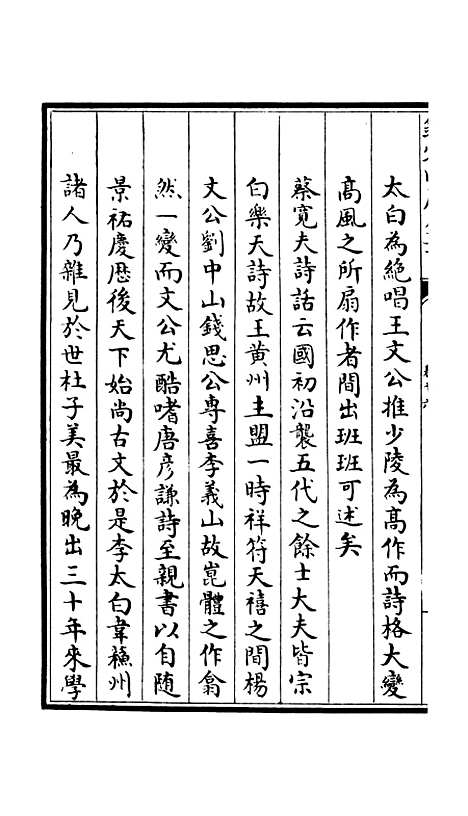 太白為絶唱王文公推少陵為髙作而詩格大變
髙風之所扇作者間出班班可述矣
蔡寛夫詩話云國初沿襲五代之餘士大夫皆宗
白樂天詩故王黄州主盟一時祥符天禧之間楊
文公劉中山錢思公專喜李義山故崑體之作翕
然一變而文公尤酷嗜唐彦謙詩至親書以自随
景祐慶厯後天下始尚古文於是李太白韋蘇州
諸人乃雜見於世杜子美最為晚出三十年來學